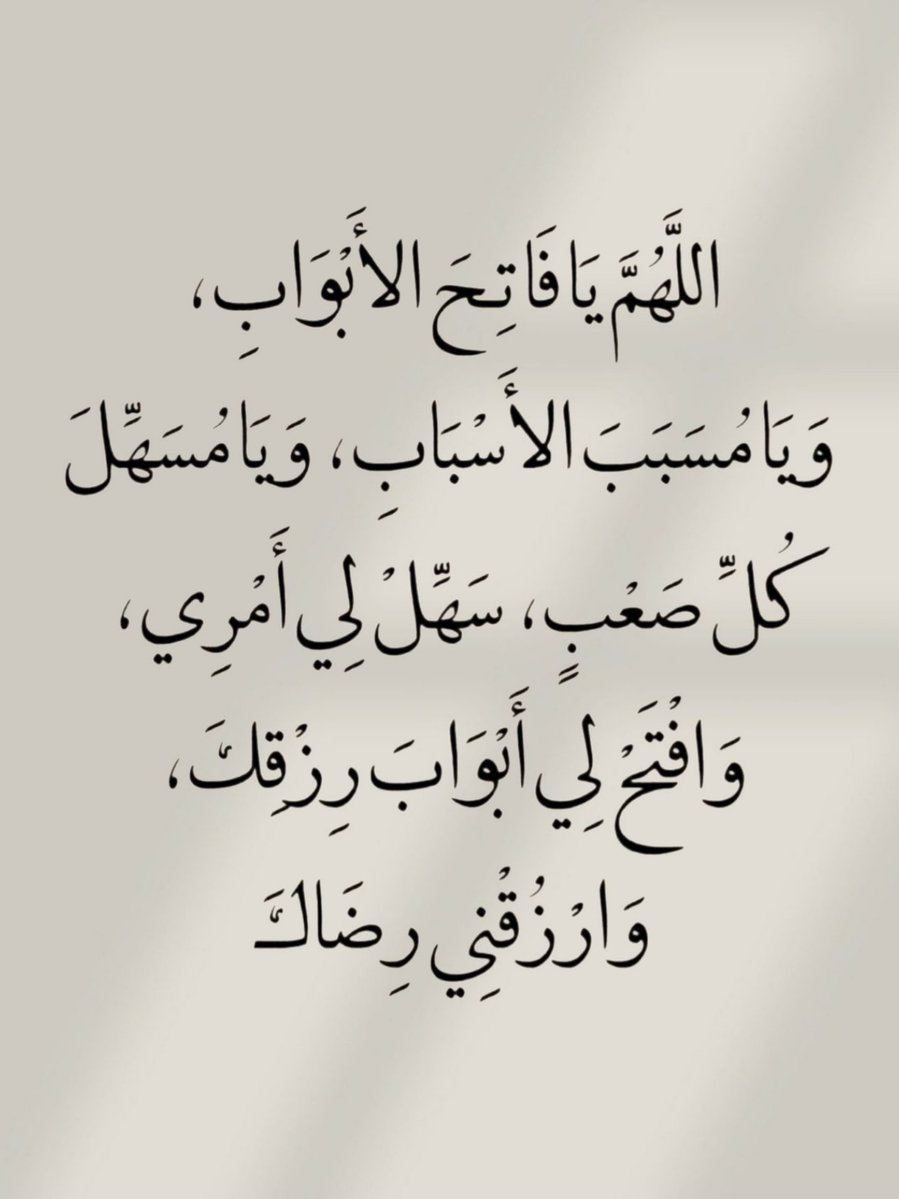 اللَّهُمَّ يَا فَاتِحَ الأَبْوَابِ،
وَيَا مُسَبَبَ الأَسْبَابِ، وَيَا مُسَهِّلَ
كُلِّ صَعْبٍ، سَهِّلْ لِي أَمْرِي،
وَافْتَحْ لِي أَبْوَابَ رِزْقِكَ،
وَارْزُقْنِي رِضَاكَ